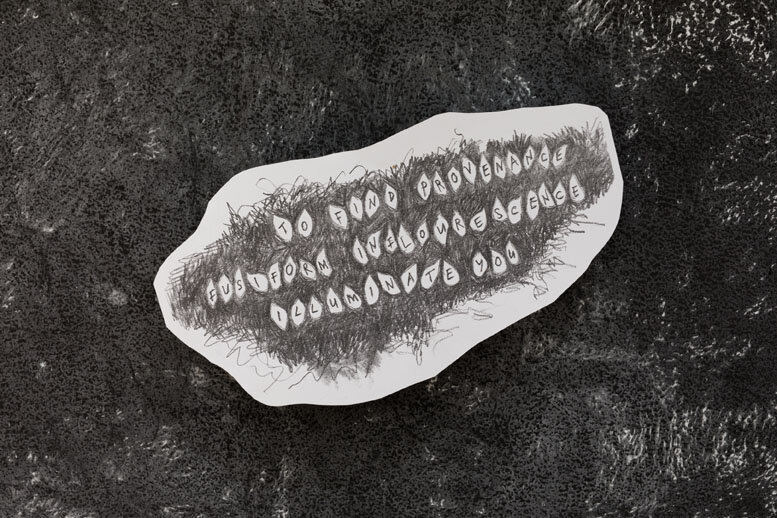 TO FIND PROVENANCE
FUSIFORM INFLOURESCENCE
ILLUMINATE YOU